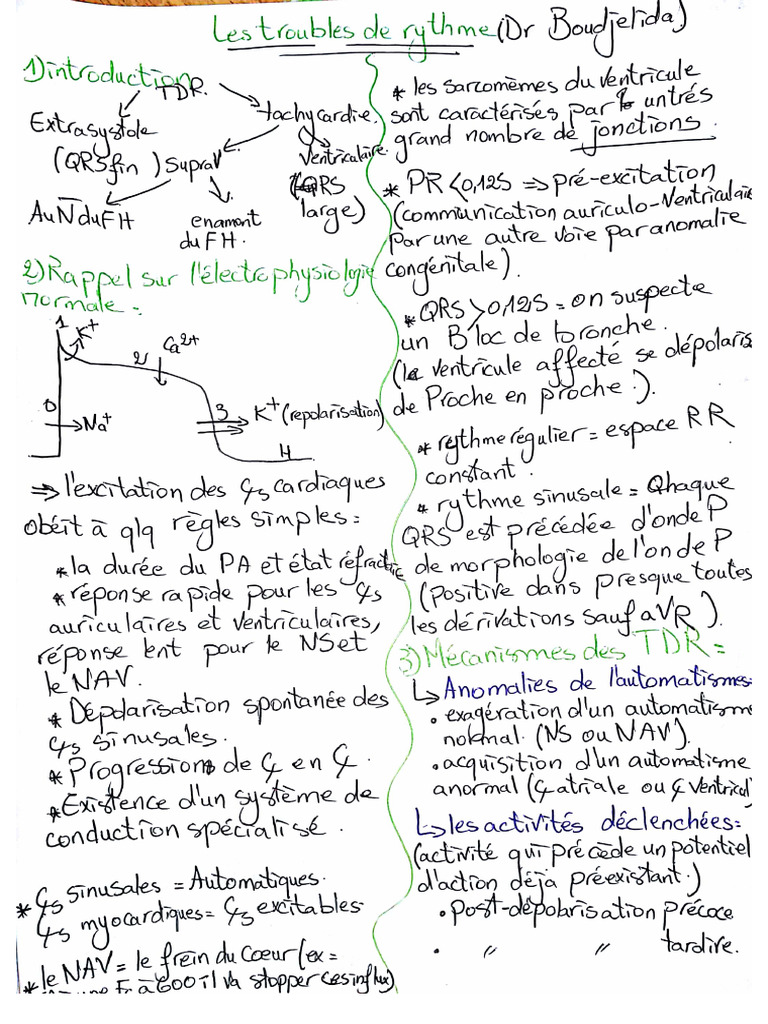 Les troubles de rythme (Dr Boudjelida)
1) introduction
TDR.
Extrasystole
tachycardie.
(QRS fin) SupraV
Ventriculaire.
(QRS
large)
Au N̄ du FH
enamont
du FH.
2) Rappel sur l'électrophysiologie
normale:
1
K⁺
2
Ca²⁺
0
Na⁺
3
K⁺ (repolarisation)
4
⇒ l'excitation des ₵s cardiaques
obéit à qlq règles simples:
* la durée du PA et état réfractaire
* réponse rapide pour les ₵s
auriculaires et ventriculaires,
réponse lent pour le NS et
le NAV.
* Dépolarisation spontanée des
₵s sinusales.
* Progression de ₵ en ₵.
* Existence d'un système de
conduction spécialisé.
* ₵s sinusales = Automatiques.
₵s myocardiques = ₵s excitables
* le NAV = le frein du Coeur (ex =
une Fr à 600 il va stopper ces influx)
* les sarcomèmes du ventricule
sont caractérisés par un très
grand nombre de jonctions.
* PR < 0,12S ⇒ pré-excitation
(communication auriculo-Ventriculaire
par une autre voie par anomalie
congénitale).
* QRS > 0,12S = on suspecte
un Bloc de bronche.
(le ventricule affecté se dépolaris
de Proche en proche.).
* rythme régulier = espace RR
constant.
* rythme sinusale = Qhaque
QRS est précédée d'onde P
de morphologie de l'onde P
(Positive dans presque toutes
les dérivations sauf aVR).
3) Mécanismes des TDR =
↳ Anomalies de l'automatismes:
• exagération d'un automatisme
normal. (NS ou NAV).
• acquisition d'un automatisme
anormal (₵ atriale ou ₵ Ventricul)
↳ les activités déclenchées =
(activité qui précède un potentiel
d'action déjà préexistant.)
• Post-dépolarisation précoce
• " " tardive.